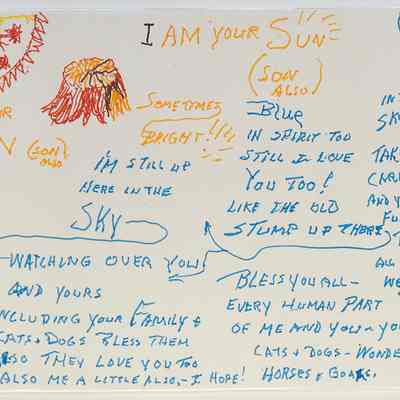 I AM YOUR SUN
(SON ALSO)
(SON ALSO)
SOMETIMES
BRIGHT!!!!
BLUE
IN SPIRIT TOO
STILL I LOVE
YOU TOO!
LIKE THE OLD
STUMP UP THERE
I'M STILL UP
HERE IN THE
SKY-
WATCHING OVER YOU
AND YOURS
INCLUDING YOUR FAMILY &
CATS + DOGS BLESS THEM
ALSO THEY LOVE YOU TOO
ALSO ME A LITTLE ALSO,- I HOPE!
BLESS YOU ALL-
EVERY HUMAN PART
OF ME AND YOU-
CATS + DOGS-
HORSES & GOATS.
IN
AND
ALL
WE